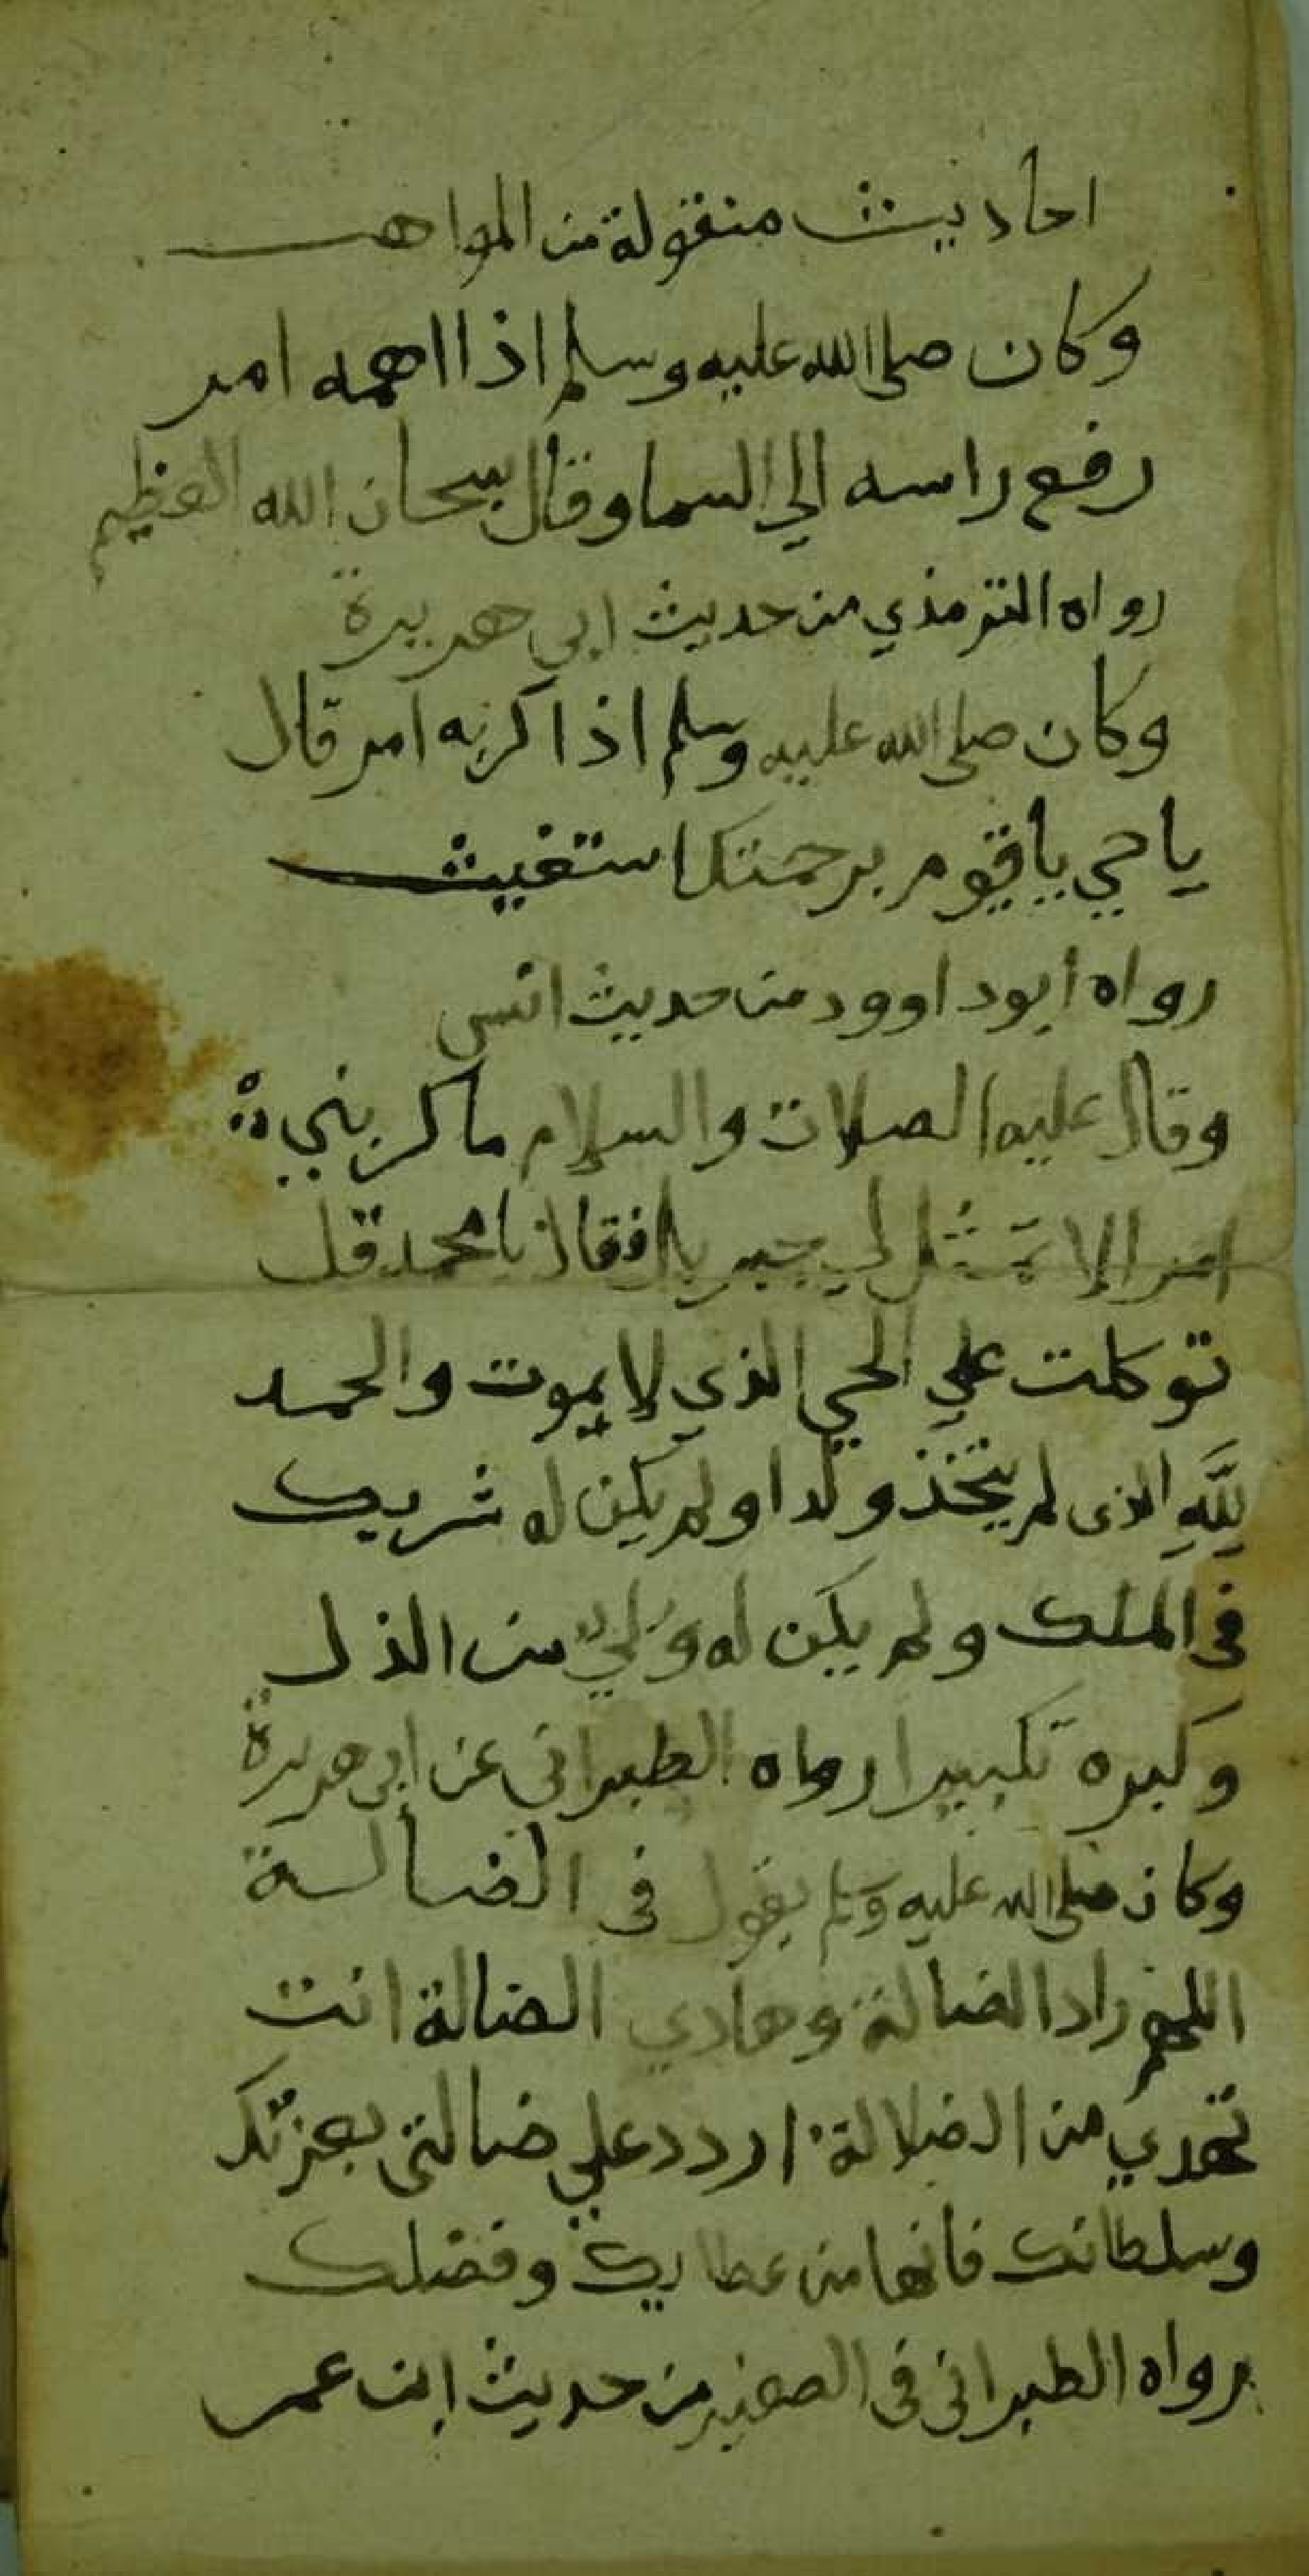 احاديث منقولة من المواهب
وكان صلى الله عليه وسلم اذا اهمه امر
رفع راسه الي السما وقال سبحان الله العظيم
رواه الترمذي من حديث ابي هريرة
وكان صلى الله عليه وسلم اذا كربه امر قال
يا حي يا قيوم برحمتك استغيث
رواه ابوداوود من حديث انس
وقال عليه الصلات والسلام ما كربني
امر الا تمثل لي جبريل فقال يا محمد قل
توكلت علي الحي الذي لا يموت والحمد
لله الذى لم يتخذ ولدا ولم يكن له شريك
فى الملك ولم يكن له ولي من الذل
وكبره تكبيرا رواه الطبرانى عن ابى هريرة
وكان صلى الله عليه وسلم يقول فى الضالة
اللهم راد الضالة وهادي الضالة انت
تهدي من الضلالة اردد علي ضالتى بعزتك
وسلطانك فانها من عطايك وفضلك
رواه الطبرانى فى الصغير من حديث ابن عمر